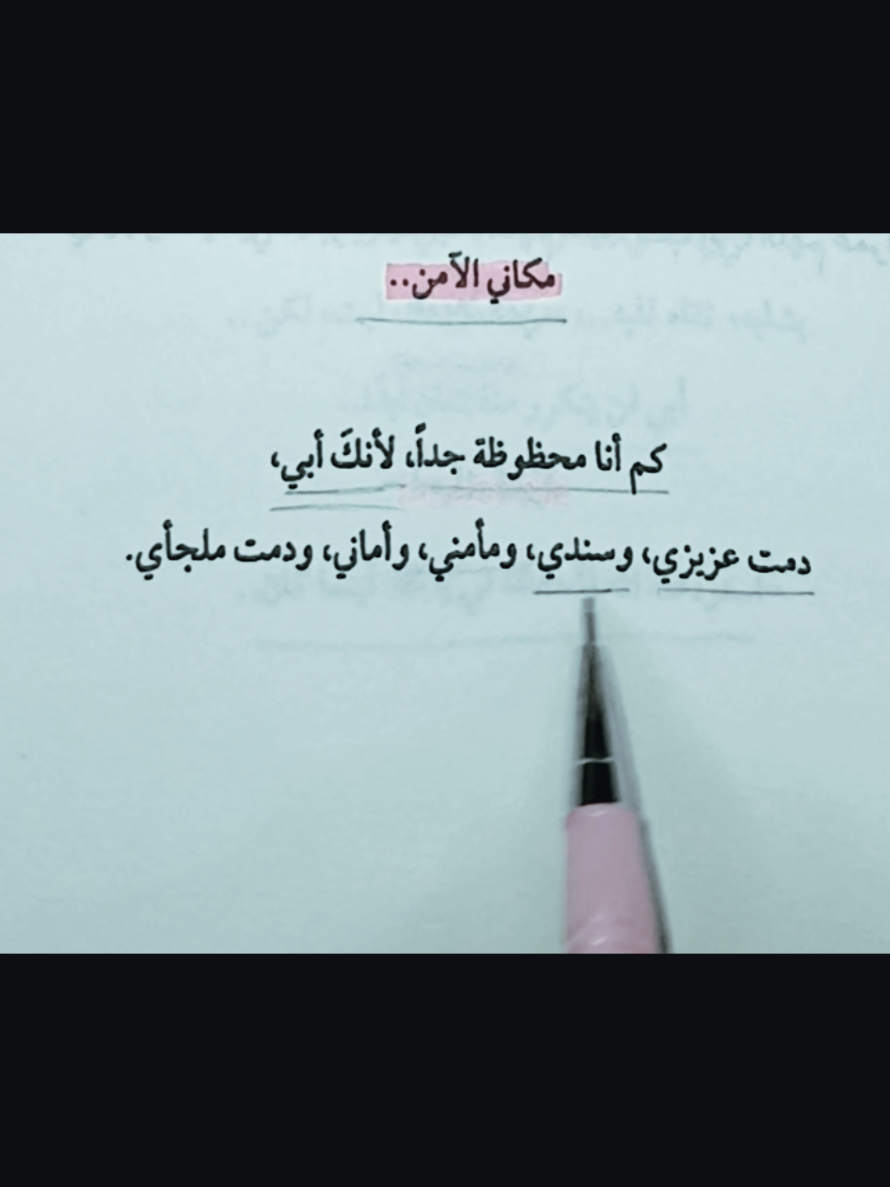 مكاني الآمن..
كم أنا محظوظة جداً، لأنكَ أبي،
دمت عزيزي، وسندي، ومأمني، وأماني، ودمت ملجأي.